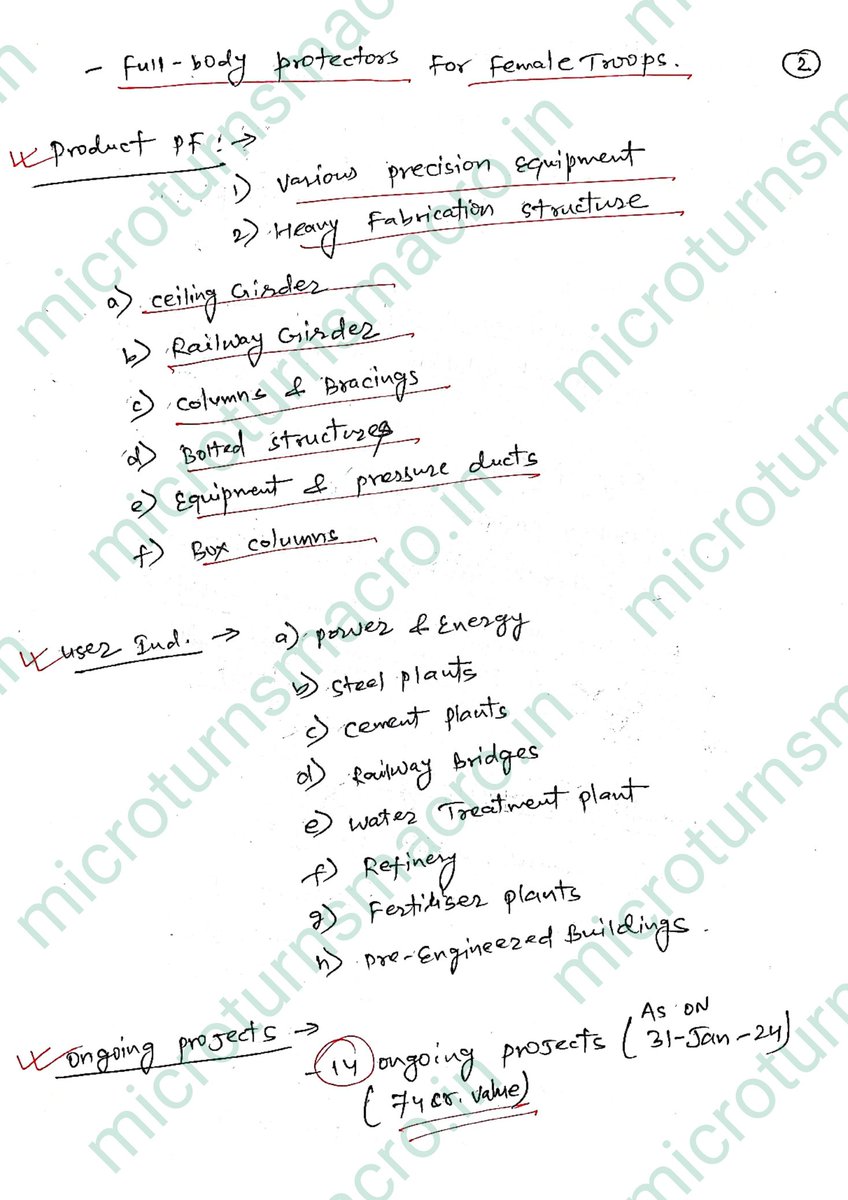 - Full-body protectors for Female Troops. 2
Product PF: →
1) Various precision Equipment
2) Heavy Fabrication Structure
a) Ceiling Girder
b) Railway Girder
c) Columns & Bracings
d) Bolted structures
e) Equipment & pressure ducts
f) Box columns
User Ind. → a) Power & Energy
b) Steel plants
c) Cement plants
d) Railway Bridges
e) Water Treatment plant
f) Refinery
g) Fertiliser plants
h) Pre-Engineered Buildings.
Ongoing projects →
- 14 ongoing projects (As on 31-Jan-24)
(74 cr. value)
microturnsmacro.in